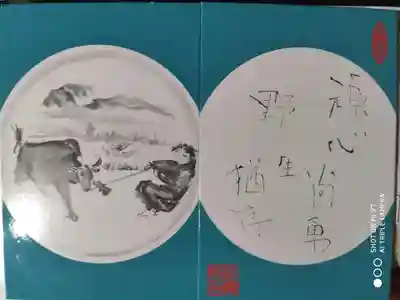 心尚勇
野生猶
SHOT ON MI 9T
AI TRIPLE CAMERA